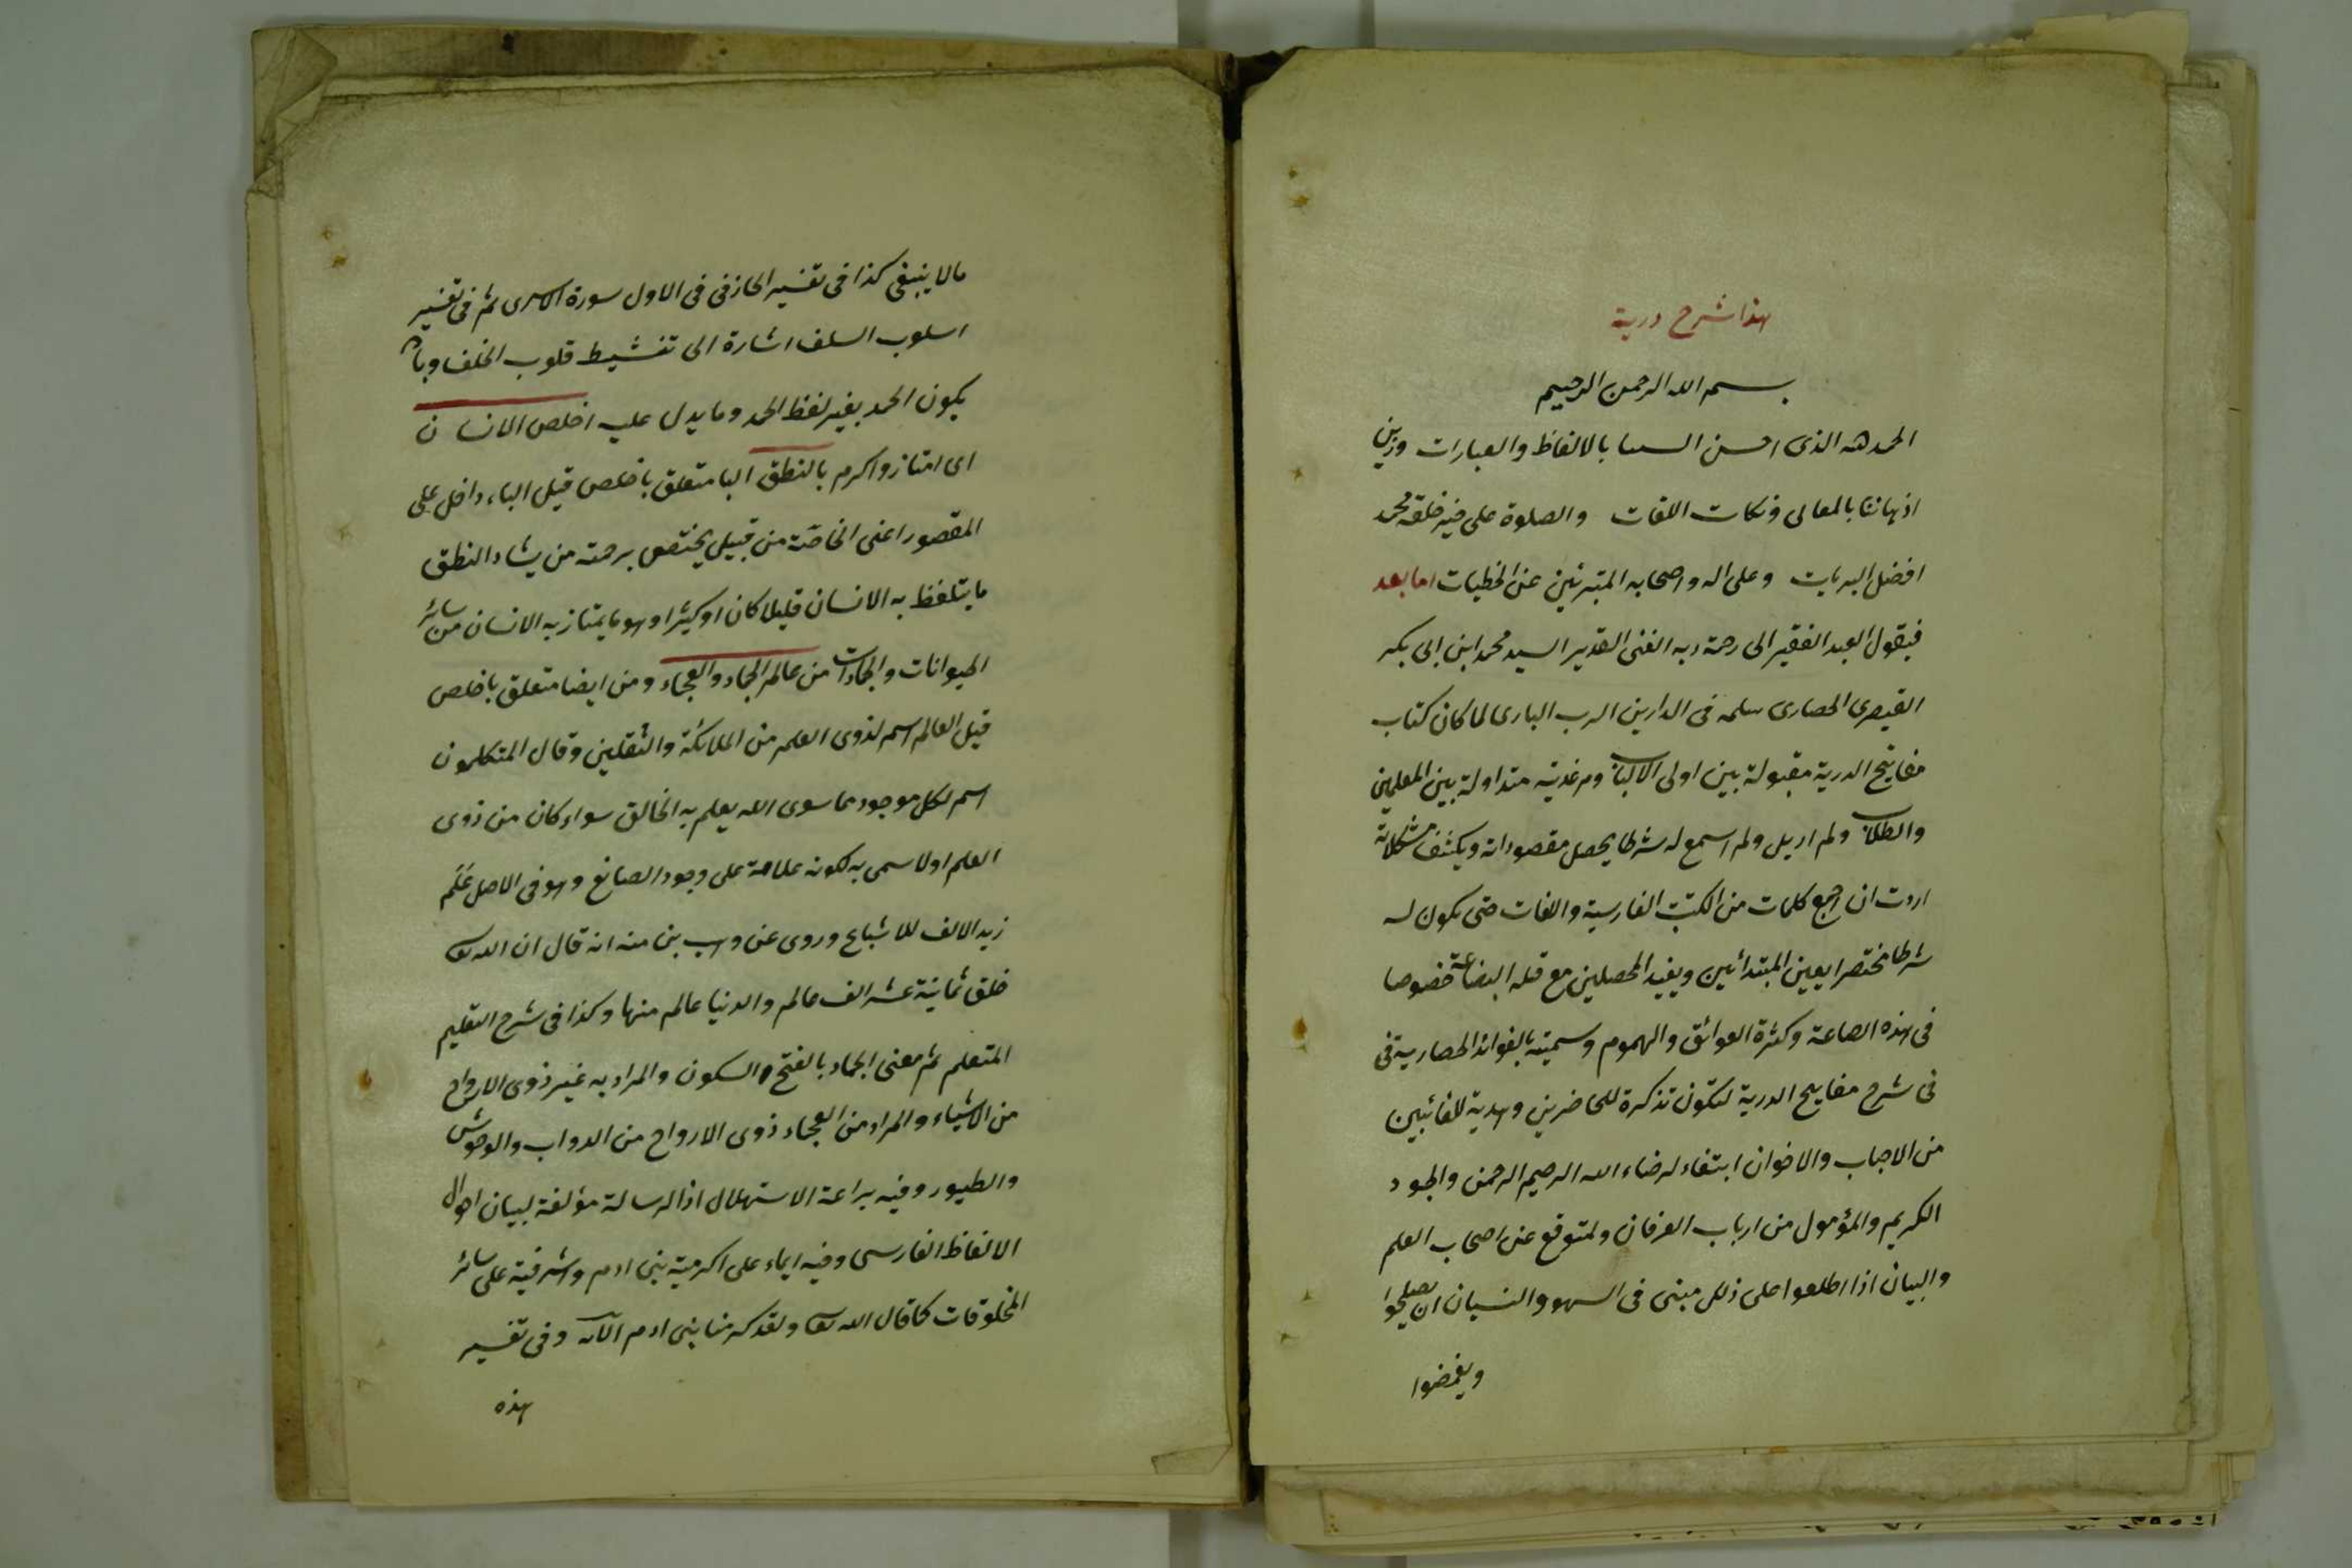 هذا شرح درية
بسم الله الرحمن الرحيم
الحمد لله الذى احسن السنا بالالفاظ والعبارات وزين
اذهاننا بالمعانى ونكات اللغات والصلوة على خير خلقه محمد
افضل البريات وعلى اله واصحابه المتبرئين عن الخطيات اما بعد
فيقول العبد الفقير الى رحمة ربه الغنى القدير السيد محمد ابن ابى بكر
القيصرى الحصارى سلمه فى الدارين الرب البارى لما كان كتاب
مفاتيح الدرية مقبولة بين اولى الالباب ومرغدية متداولة بين المعلمين
والطلاب ولم اريل ولم اسمع له شرطا يحصل مقصوداته ويكشف مشكلاته
اردت ان اجمع كلمات من الكتب الفارسية واللغات حتى يكون له
شرطا مختصرا يعين المبتدائين ويفيد المحصلين مع قلة البضاعة خصوصا
فى هذه الصاعة وكثرة العوائق والهموم وسميته بالفوائد الحصارية فى
فى شرح مفاتيح الدرية لتكون تذكرة للحاضرين وهدية للغائبين
من الاحباب والاخوان ابتغاء لرضاء الله الرحيم الرحمن والجود
الكريم والمؤمول من ارباب العرفان ولمتوقع عن اصحاب العلم
والبيان اذا اطلعوا على ذلل مبنى فى السهو والنسيان ان يصلحوا
ويغمضوا
مالا ينبغى كذا فى تفسير الخازفى فى الاول سورة الاسرى ثم فى تغيير
اسلوب السلف اشارة الى تنشيط قلوب الخلف وبان
يكون الحمد بغير لفظ الحمد وما يدل عليه اخلص الانسان
اى امتاز واكرم بالنطق البا متعلق باخلص قيل الباء داخل على
المقصور اعنى الخاصة من قبيل يختص برحمته من يشاء النطق
ما يتلفظ به الانسان قليلا كان او كثيرا وهو ما يمتاز به الانسان من سائر
الحيوانات والجمادات من عالم الجماد والعجماء ومن ايضا متعلق باخلص
قيل العالم اسم لذوى العلم من الملائكة والثقلين وقال المتكلمون
اسم لكل موجود مما سوى الله يعلم به الخالق سواء كان من ذوى
العلم اولا سمى به لكونه علامة على وجود الصانع وهو فى الاصل عَلَم
زيد الالف للاشباع وروى عن وهب بن منه انه قال ان الله تعا
خلق ثمانية عشر الف عالم والدنيا عالم منها وكذا فى شرح التعليم
المتعلم ثم معنى الجماد بالفتح والسكون والمراد به غير ذوى الارواح
من الاشياء والمراد من العجماء ذوى الارواح من الدواب والوحوش
والطيور وفيه براعة الاستهلال اذ الرسالة مؤلفة لبيان احوال
الالفاظ الفارسى وفيه ايماء على اكرمية بنى ادم واشرفية على سائر
المخلوقات كما قال الله تعا ولقد كرمنا بنى ادم الآية وفى تفسير
هذه